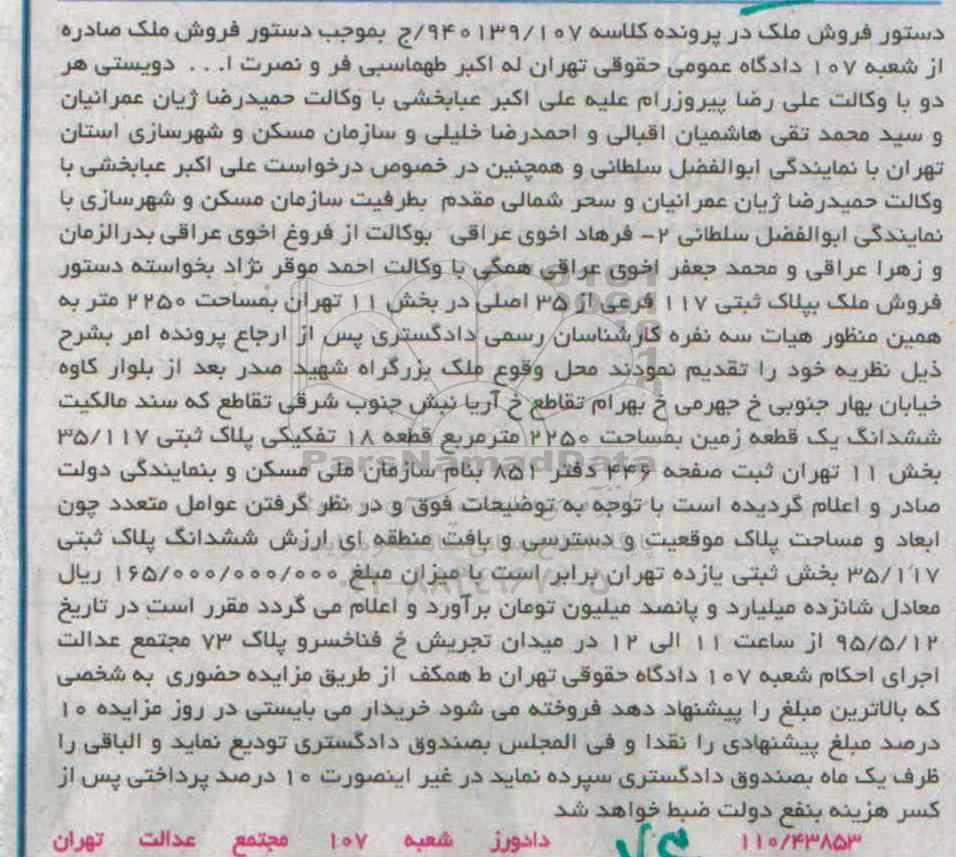 دستور فروش ملک در پرونده کلاسه ۹۴۰۱۳۹/۱۰۷/ج بموجب دستور فروش ملک صادره
از شعبه ۱۰۷ دادگاه عمومی حقوقی تهران له اکبر طهماسبی فر و نصرت ا... دویستی هر
دو با وکالت علی رضا پیروزرام علیه علی اکبر عبابخشی با وکالت حمیدرضا ژیان عمرانیان
و سید محمد تقی هاشمیان اقبالی و احمدرضا خلیلی و سازمان مسکن و شهرسازی استان
تهران با نمایندگی ابوالفضل سلطانی و همچنین در خصوص درخواست علی اکبر عبابخشی با
وکالت حمیدرضا ژیان عمرانیان و سحر شمالی مقدم بطرفیت سازمان مسکن و شهرسازی با
نمایندگی ابوالفضل سلطانی ۲- فرهاد اخوی عراقی بوکالت از فروغ اخوی عراقی بدرالزمان
و زهرا عراقی و محمد جعفر اخوی عراقی همگی با وکالت احمد موقر نژاد بخواسته دستور
فروش ملک بپلاک ثبتی ۱۱۷ فرعی از ۳۵ اصلی در بخش ۱۱ تهران بمساحت ۲۲۵۰ متر به
همین منظور هیات سه نفره کارشناسان رسمی دادگستری پس از ارجاع پرونده امر بشرح
ذیل نظریه خود را تقدیم نمودند محل وقوع ملک بزرگراه شهید صدر بعد از بلوار کاوه
خیابان بهار جنوبی خ جهرمی خ بهرام تقاطع خ آریا نبش جنوب شرقی تقاطع که سند مالکیت
ششدانگ یک قطعه زمین بمساحت ۲۲۵۰ مترمربع قطعه ۱۸ تفکیکی پلاک ثبتی ۳۵/۱۱۷
بخش ۱۱ تهران ثبت صفحه ۴۴۶ دفتر ۸۵۱ بنام سازمان ملی مسکن و بنمایندگی دولت
صادر و اعلام گردیده است با توجه به توضیحات فوق و در نظر گرفتن عوامل متعدد چون
ابعاد و مساحت پلاک موقعیت و دسترسی و بافت منطقه ای ارزش ششدانگ پلاک ثبتی
۳۵/۱۱۷ بخش ثبتی یازده تهران برابر است با میزان مبلغ ۱۶۵/۰۰۰/۰۰۰/۰۰۰ ریال
معادل شانزده میلیارد و پانصد میلیون تومان برآورد و اعلام می گردد مقرر است در تاریخ
۹۵/۵/۱۲ از ساعت ۱۱ الی ۱۲ در میدان تجریش خ فناخسرو پلاک ۷۳ مجتمع عدالت
اجرای احکام شعبه ۱۰۷ دادگاه حقوقی تهران ط همکف از طریق مزایده حضوری به شخصی
که بالاترین مبلغ را پیشنهاد دهد فروخته می شود خریدار می بایستی در روز مزایده ۱۰
درصد مبلغ پیشنهادی را نقدا و فی المجلس بصندوق دادگستری تودیع نماید و الباقی را
ظرف یک ماه بصندوق دادگستری سپرده نماید در غیر اینصورت ۱۰ درصد پرداختی پس از
کسر هزینه بنفع دولت ضبط خواهد شد
۱۱۰/۴۳۸۵۳ دادورز شعبه ۱۰۷ مجتمع عدالت تهران
ParsNamadData